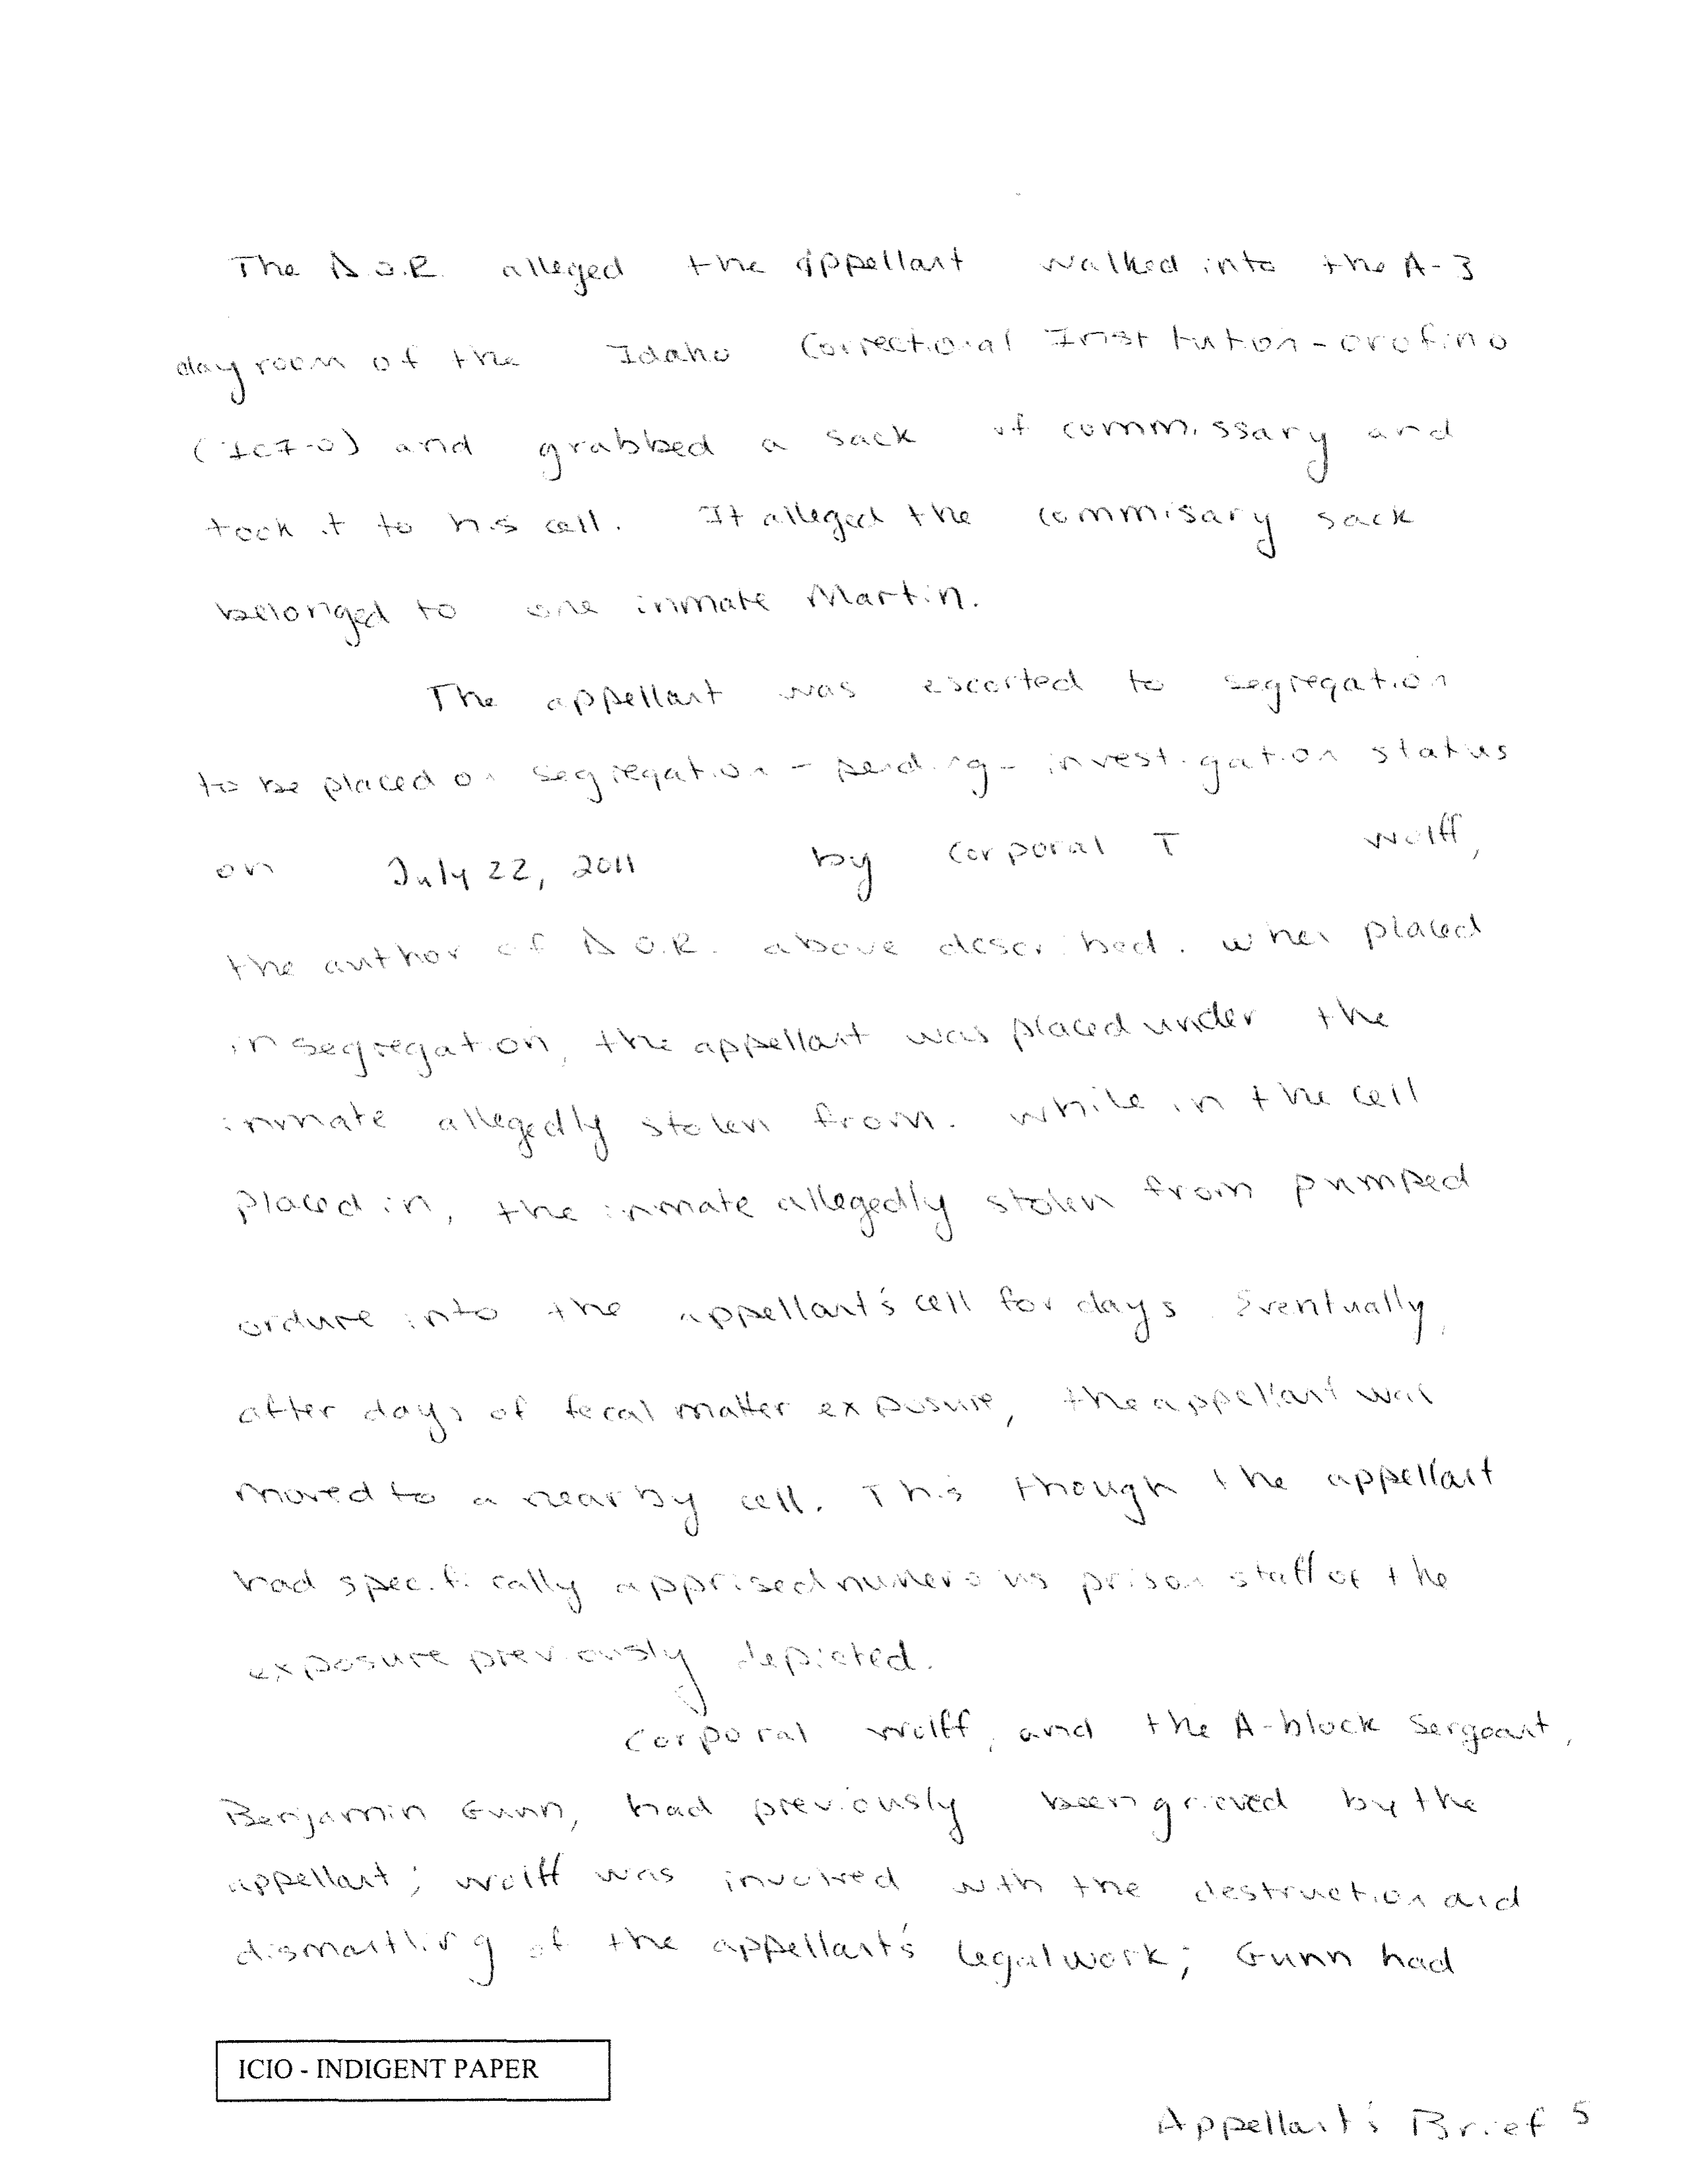 The D.O.R. alleged the appellant walked into the A-3
dayroom of the Idaho Correctional Institution-orofino
(ICI-O) and grabbed a sack of commissary and
took it to his cell. It alleged the commisary sack
belonged to one inmate Martin.
The appellant was escorted to segregation
to be placed on segregation-pending-investigation status
on July 22, 2011 by Corporal T Wolff,
the author of D.O.R. above described. When placed
in segregation, the appellant was placed under the
inmate allegedly stolen from. While in the cell
placed in, the inmate allegedly stolen from pumped
ordure into the appellant's cell for days. Eventually,
after days of fecal matter exposure, the appellant was
moved to a nearby cell. This though the appellant
had specifically apprised numerous prison staff of the
exposure previously depicted.
Corporal Wolff, and the A-block Sergeant,
Benjamin Gunn, had previously been grieved by the
appellant; Wolff was involved with the destruction and
dismantling of the appellant's legal work; Gunn had
ICIO - INDIGENT PAPER
Appellant's Brief 5